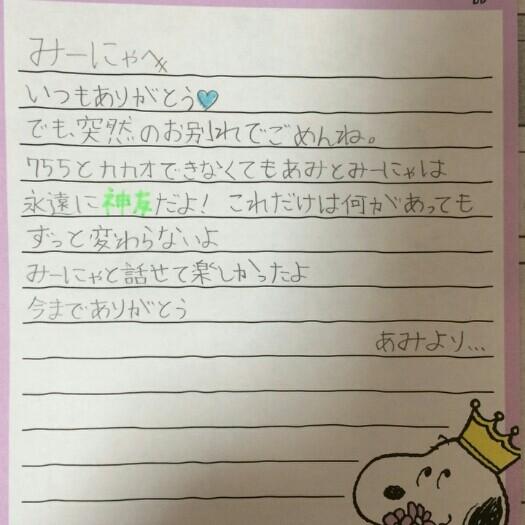 みーにゃへ
いつもありがとう♥
でも、突然のお別れでごめんね。
755とカカオできなくてもあみとみーにゃは
永遠に神友だよ！これだけは何があっても
ずっと変わらないよ
みーにゃと話せて楽しかったよ
今までありがとう
あみより...